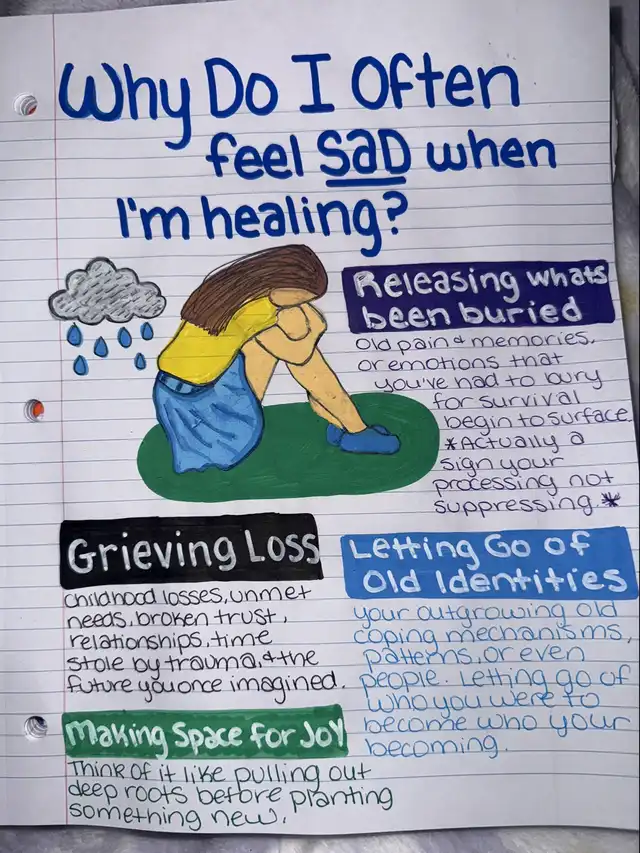 Why Do I Often
feel SaD when
I'm healing?
Releasing whats
been buried
Old pain & memories,
or emotions that
you've had to bury
for survival
begin to surface
*Actually a
sign your
processing not
suppressing.*
Grieving Loss
childhood losses, unmet
needs, broken trust,
relationships, time
stole by trauma, & the
future you once imagined.
Letting Go of
Old Identities
your outgrowing old
coping mechanisms,
patterns, or even
people. Letting go of
who you were to
become who your
becoming.
Making Space for Joy
Think of it like pulling out
deep roots before planting
something new.